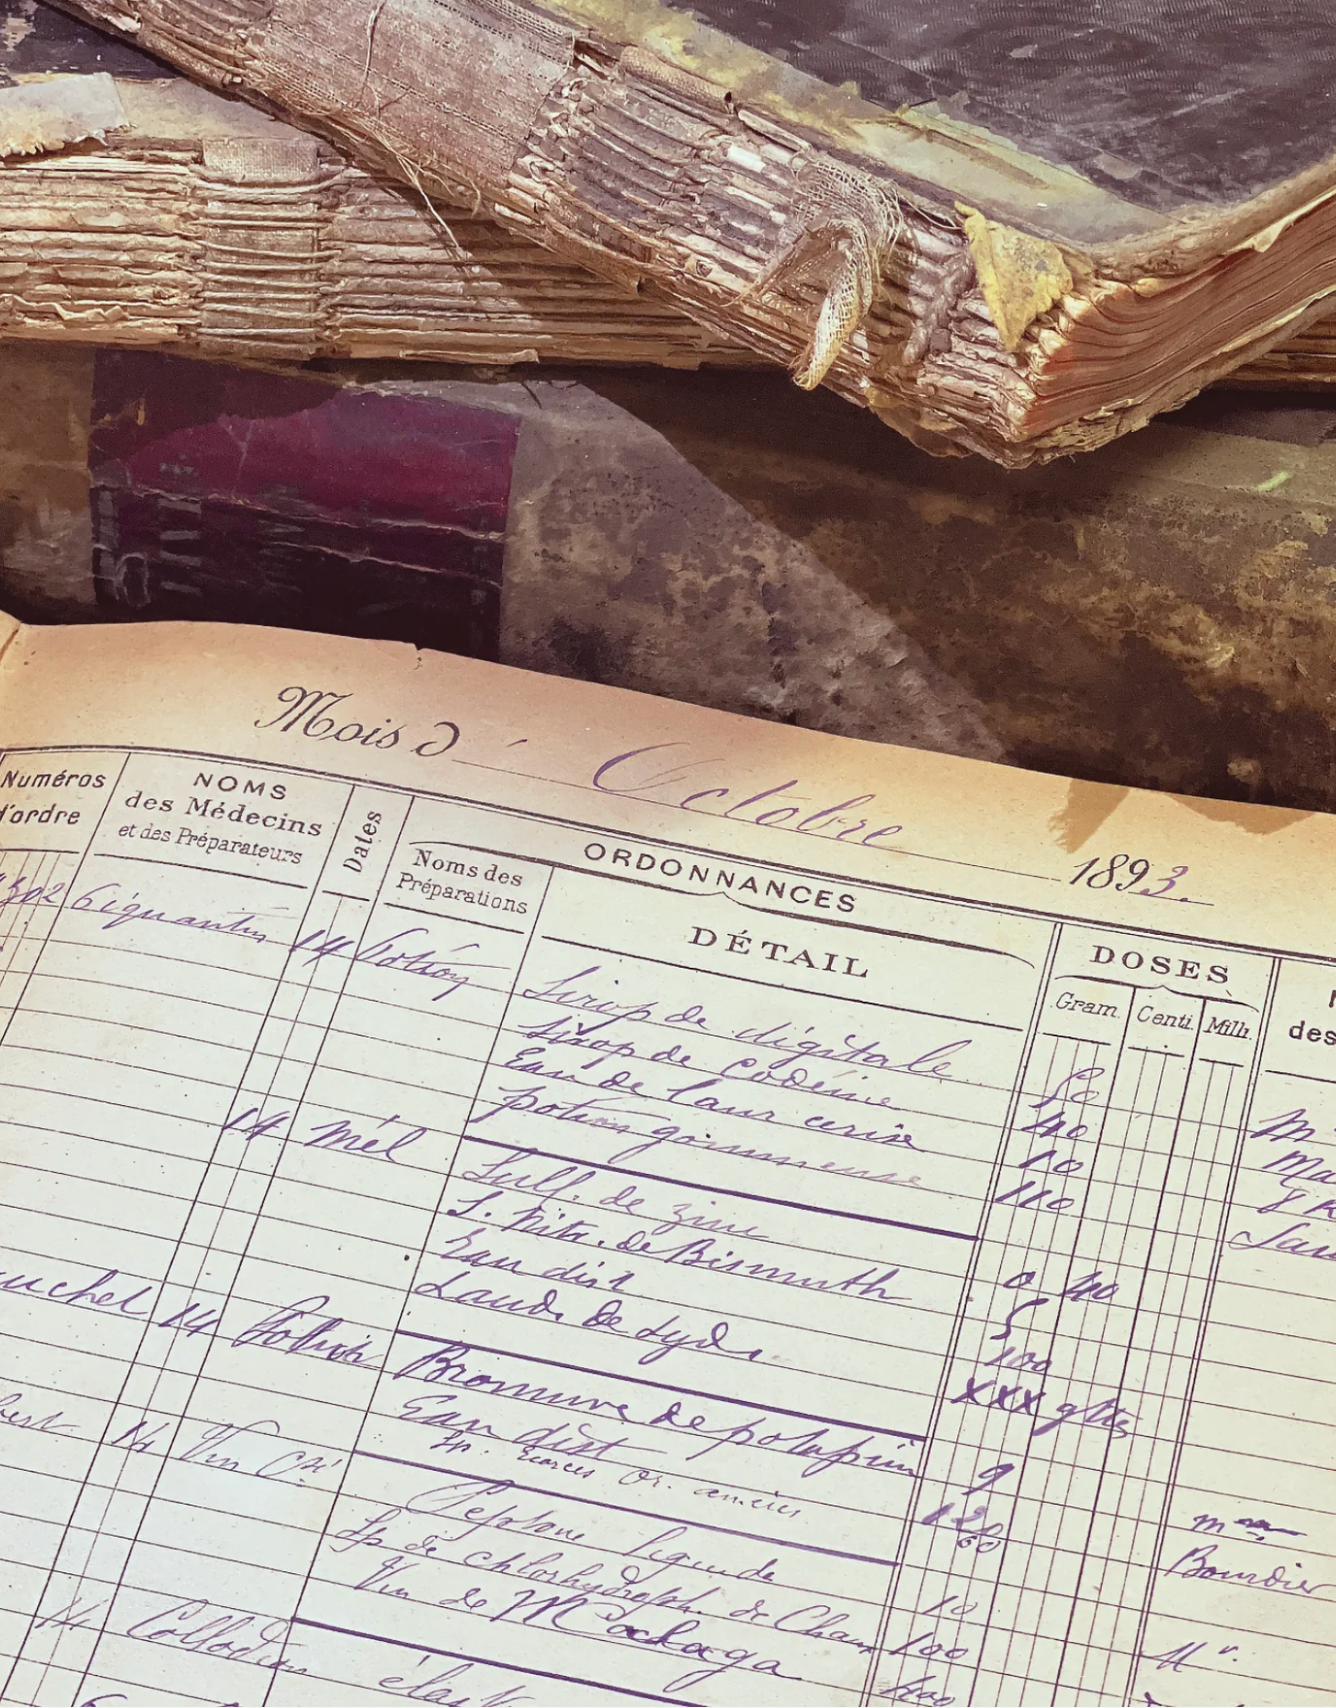 Mois d' Octobre 1893.
Numéros d'ordre
NOMS des Médecins et des Préparateurs
Dates
ORDONNANCES
Noms des Préparations
DÉTAIL
DOSES
Gram. Centi. Milli.
des
302 14 Potion Sirop de digitale 50
Sirop de codéine 40
Eau de laur cerise 10
potion gommeuse 110
14 Mél Sulf. de zinc 0 40
S. Nitr. de Bismuth 5
Eau dist 100
Laud. de Syd. XXX gttes
14 Solution Bromure de potassium 9
Eau dist 120
Sp. Ecorces Or. amères 60
Bourdier
14 Vin Peptone liquide 10
Sp de Chlorhydroph. de Chaux 100
Vin de Malaga 400
14 Collodion élast